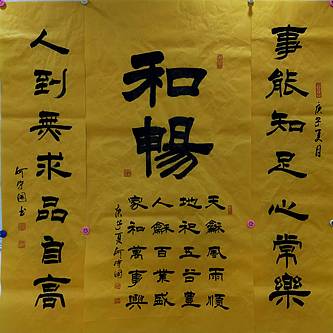 事能知足心常樂
庚子夏月
和暢
天龢風雨順
五谷豊
人龢百業盛
家和萬事興
庚子夏
人到無求品自高